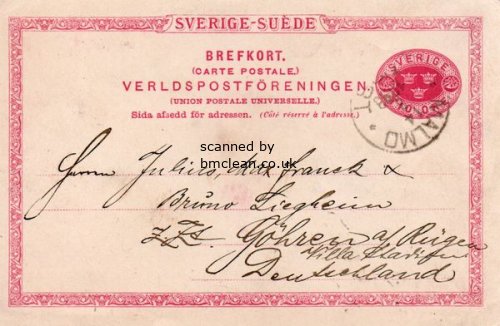 SVERIGE-SUÈDE
BREFKORT.
(CARTE POSTALE.)
VERLDSPOSTFÖRENINGEN
(UNION POSTALE UNIVERSELLE.)
Sida afsedd för adressen. (Côté réservé à l'adresse.)
SVERIGE
MALMÖ
scanned by
bmclean.co.uk
Herrn Julius, Max Franck &
Bruno Liegheim
z. Zt. Göhren a/Rügen
Villa
Deutschland